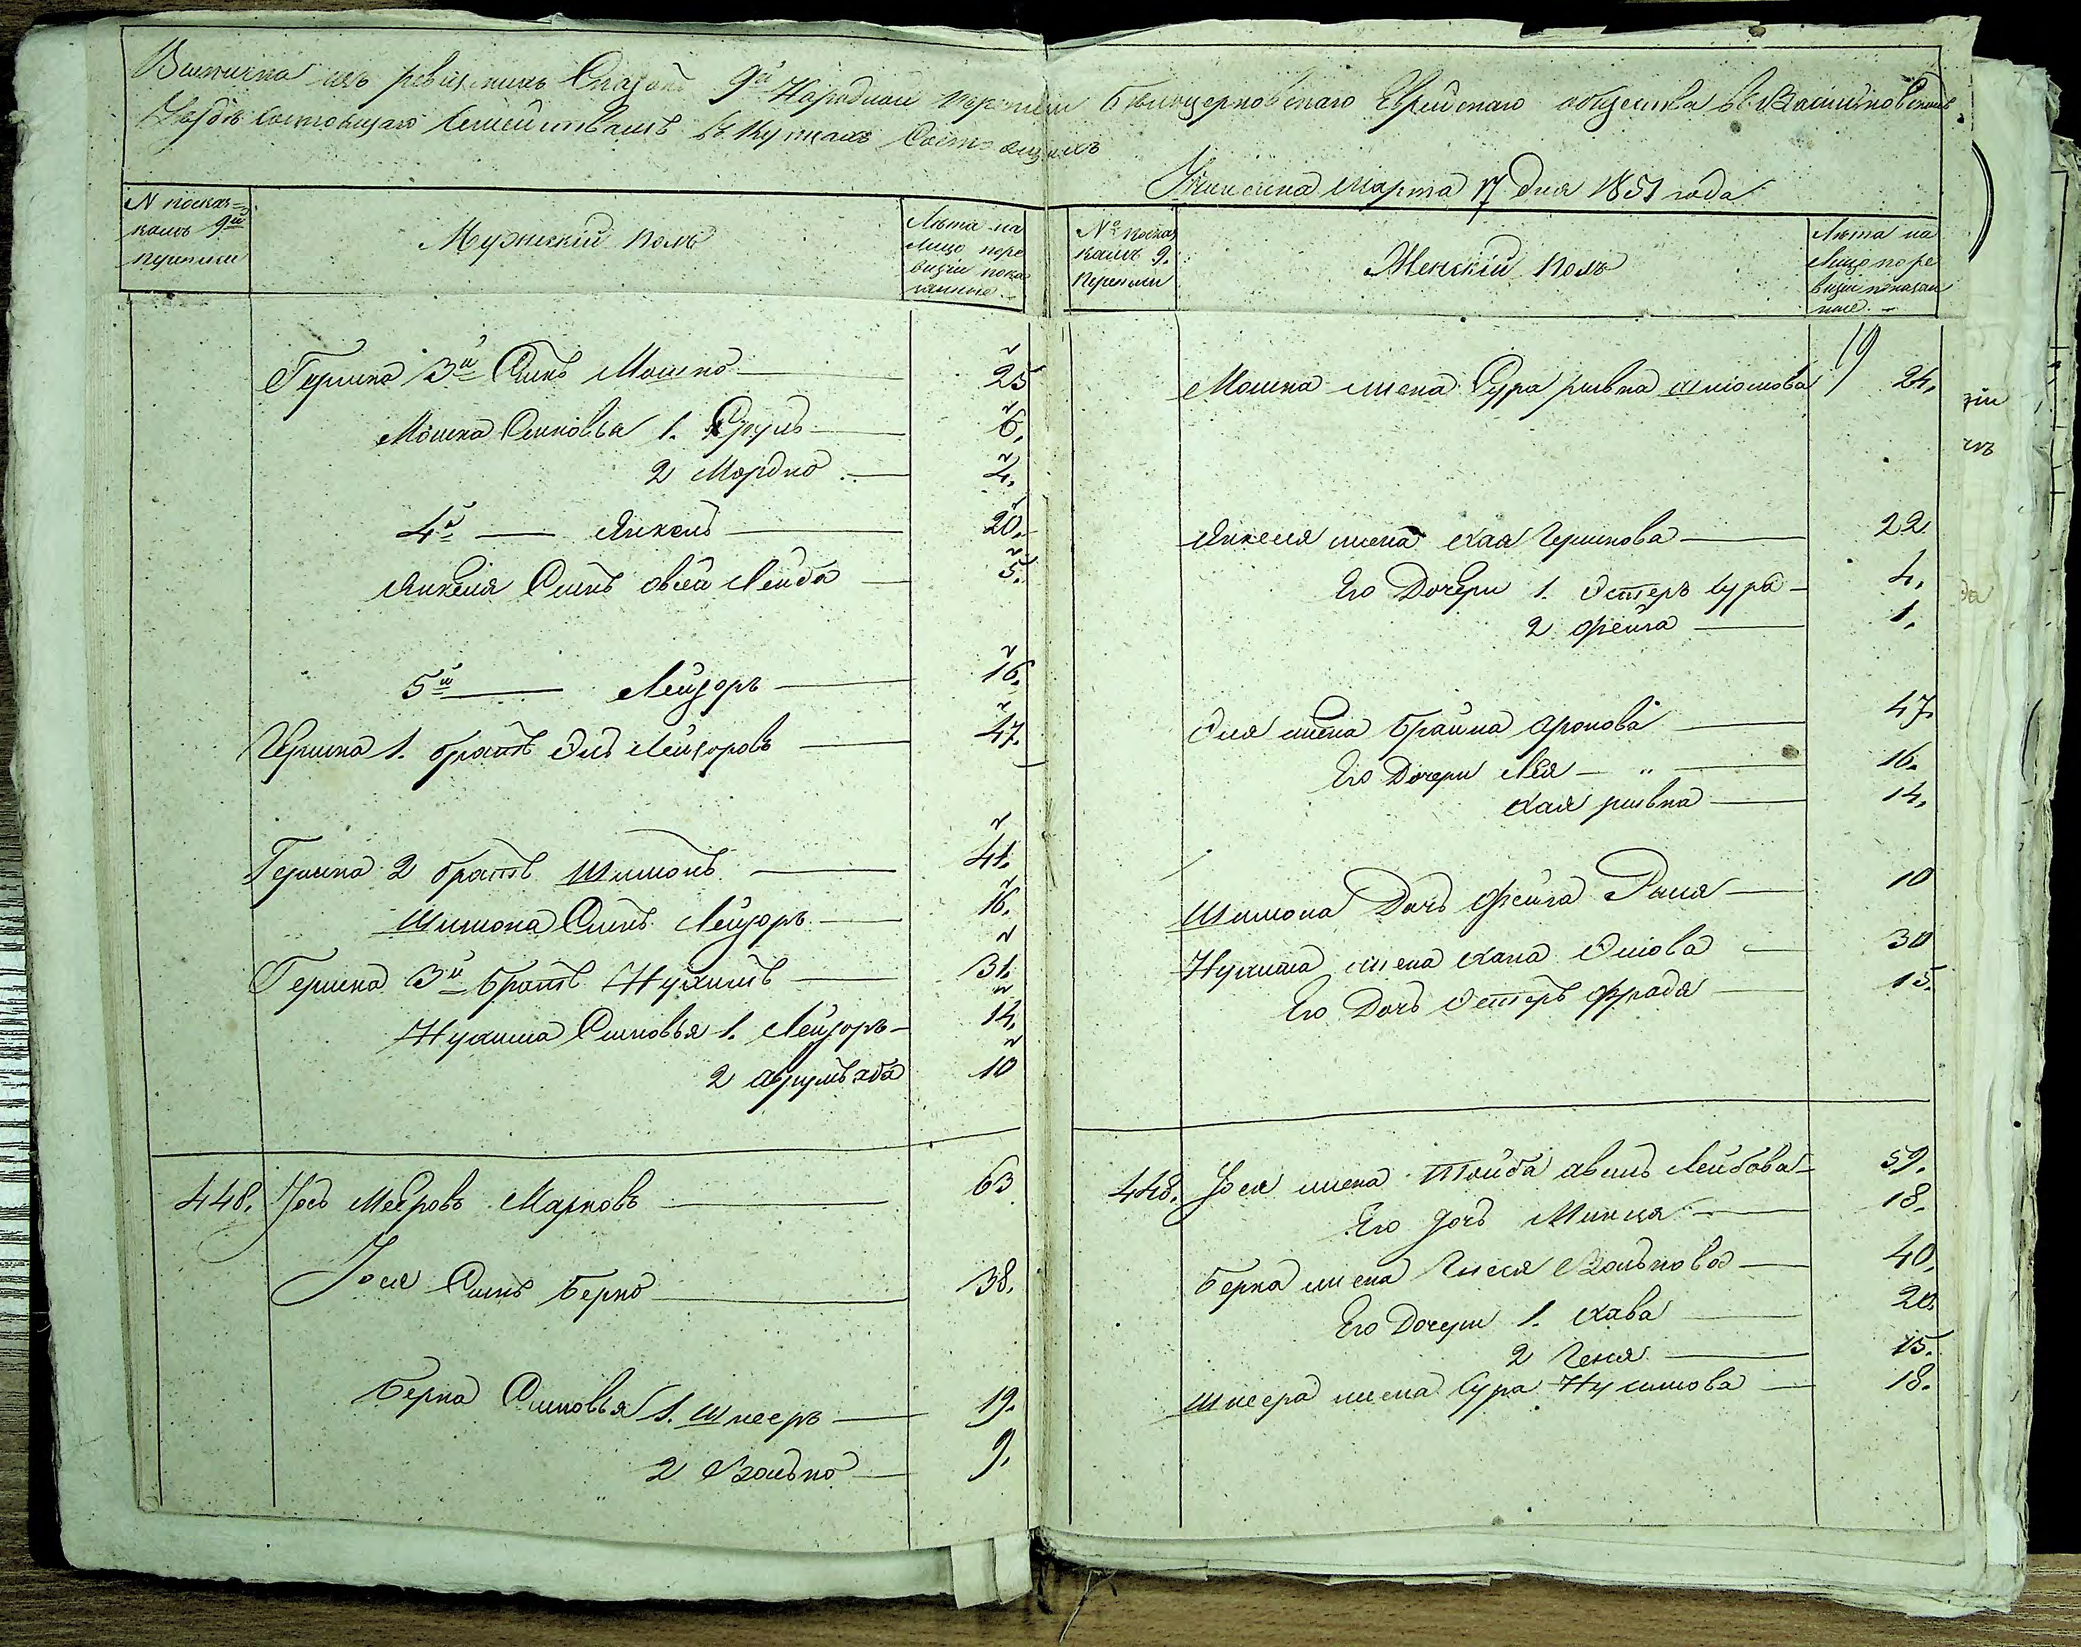 Выписка изъ ревизскихъ Сказокъ 9й Народной переписи Бѣлоцерковскаго Еврейскаго общества въ Васильковскомъ
Уѣздѣ Состоящаго Семействамъ въ Купцахъ Состоящихъ
Учинена марта 17 дня 1851 года
N по сказкамъ 9й переписи
Мужескій полъ
Лѣта на Лицо по ревизіи показанные
№ по сказкамъ 9. переписи
Женскій полъ
Лѣта на Лицо по ревизіи показанные
19
Гершка 3й Сынъ Мошко 25
Мошка Сыновья 1. Сруль 6.
2 Мордко 4.
4й — Янкель 20.
Янкеля Сынъ овсей Лейба 5.
5й — Лейзоръ 16.
Гершка 1. братъ Эль Лейзоровъ 47.
Гершка 2 братъ Шимонъ 41.
Шимона Сынъ Лейзоръ 16.
Гершка 3й братъ Нухимъ 31.
Нухима Сыновья 1. Лейзоръ 14.
2 аврумъ аба 10
448. Іось Мееровъ Марковъ 63
Іося Сынъ Берко 38.
Берка Сыновья 1. Шнееръ 19.
2 Волько 9.
Мошка жена Сура рывка 24.
Янкеля жена хая Гершкова 22
Его Дочери 1. Эстеръ Сура 4.
2 Фейга 1.
Эля жена Брайна Аронова 47.
Его Дочери Лея — „ 16.
хая рывка 14.
Шимона Дочь Фейга Рыся 10
Нухима жена хана 30
Его Дочь Эстеръ Фрада 15.
448. Іося жена Тойба Лейбова 59.
Его Дочь Минця 18.
Берка жена Гися Волькова 40.
Его Дочери 1. хава 20.
2 Геня 15.
Шнеера жена Сура Нухимова 18.